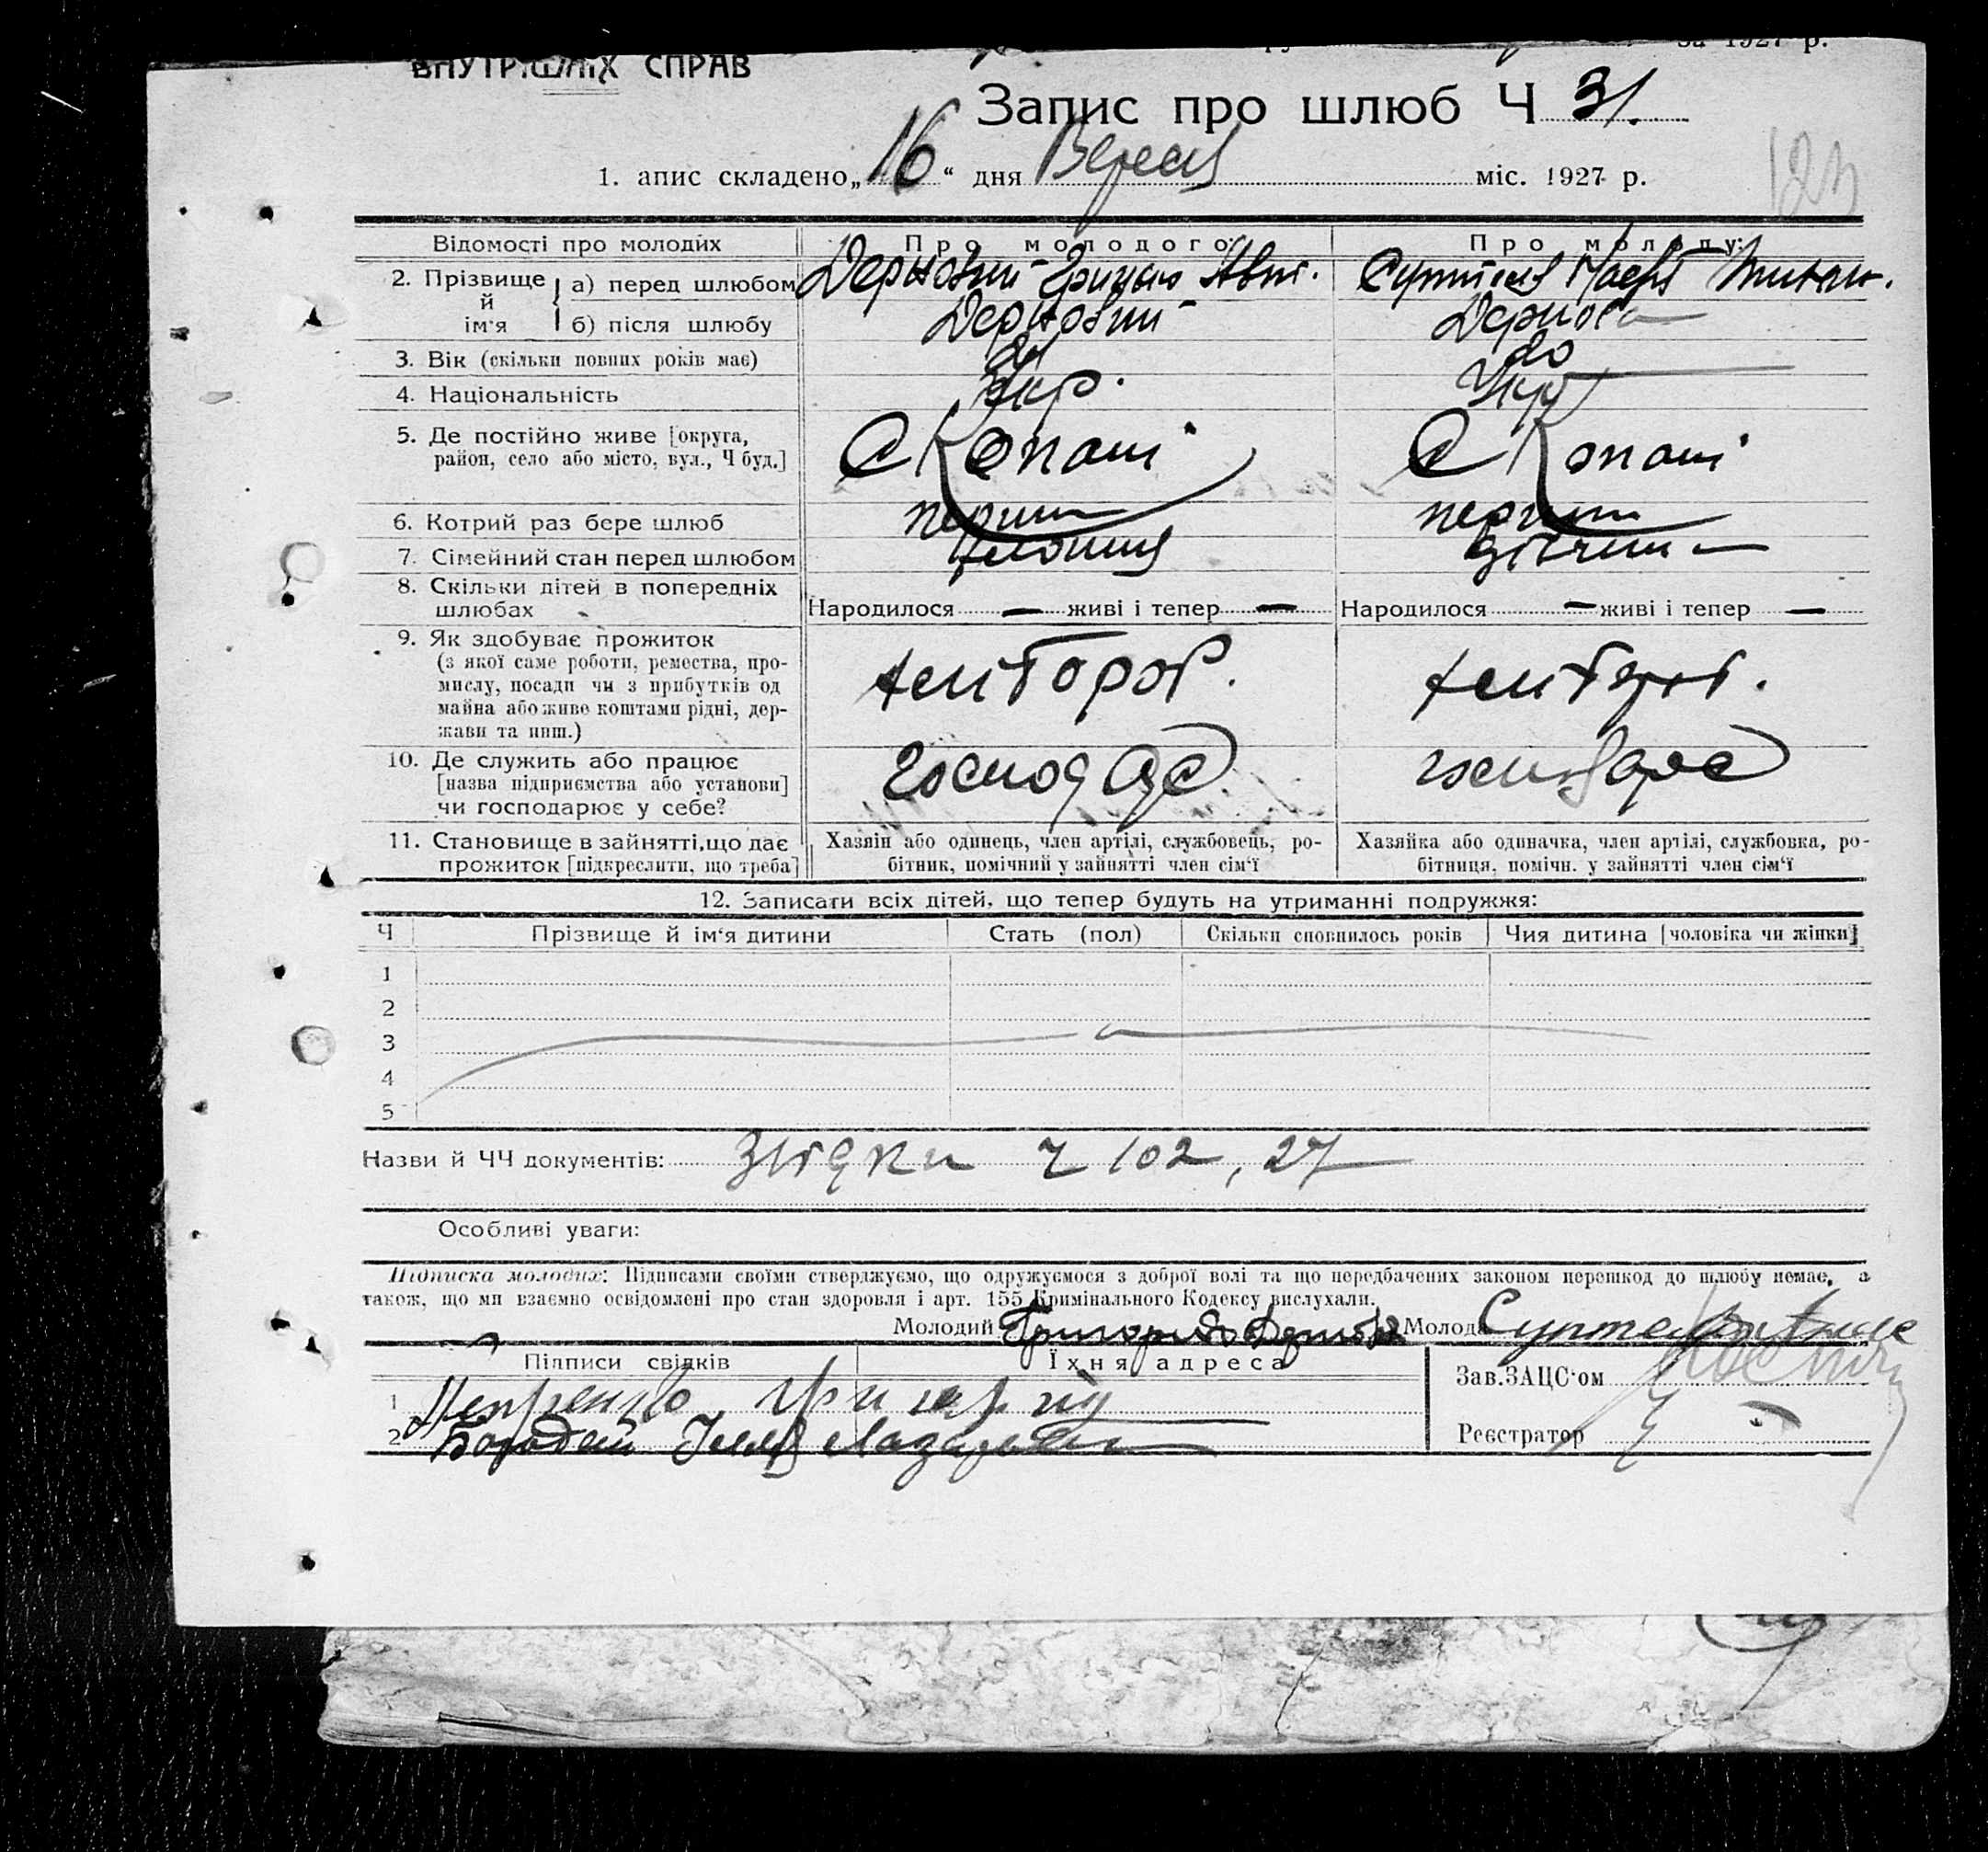 ВНУТРІШНІХ СПРАВ
за 1927 р.
Запис про шлюб Ч 31.
1. апис складено „16“ дня Вересня міс. 1927 р.
Відомості про молодих
Про молодого:
Про молоду:
2. Прізвище й ім'я
а) перед шлюбом
Дерновий Грицько
б) після шлюбу
Дерновий
Дернова
3. Вік (скільки повних років має)
20
4. Національність
Укр.
Укр
5. Де постійно живе [округа, район, село або місто, вул., Ч буд.]
С Копані
С Копані
6. Котрий раз бере шлюб
перший
перший
7. Сімейний стан перед шлюбом
дівчина
8. Скільки дітей в попередніх шлюбах
Народилося — живі і тепер —
Народилося — живі і тепер —
9. Як здобуває прожиток
(з якої саме роботи, ремества, промислу, посади чи з прибутків од майна або живе коштами рідні, держави та инш.)
хлібороб.
хлібороб.
10. Де служить або працює
[назва підприємства або установи]
чи господарює у себе?
господарє
господарє
11. Становище в зайнятті, що дає прожиток [підкреслити, що треба]
Хазяїн або одинець, член артілі, службовець, робітник, помічний у зайнятті член сім‘ї
Хазяйка або одиначка, член артілі, службовка, робітниця, помічн. у зайнятті член сім‘ї
12. Записати всіх дітей, що тепер будуть на утриманні подружжя:
Ч Прізвище й ім‘я дитини Стать (пол) Скільки сповнилось років Чия дитина [чоловіка чи жінки]
1
2
3
4
5
Назви й ЧЧ документів: ч 102, 27
Особливі уваги:
Підписка молодих: Підписами своїми стверджуємо, що одружуємося з доброї волі та що передбачених законом перешкод до шлюбу немає, а
також, що ми взаємно освідомлені про стан здоровля і арт. 155 Кримінального Кодексу вислухали.
Молодий Молода
Підписи свідків Їхня адреса
Зав.ЗАЦС‘ом
1
2 Лазарович
Реєстратор